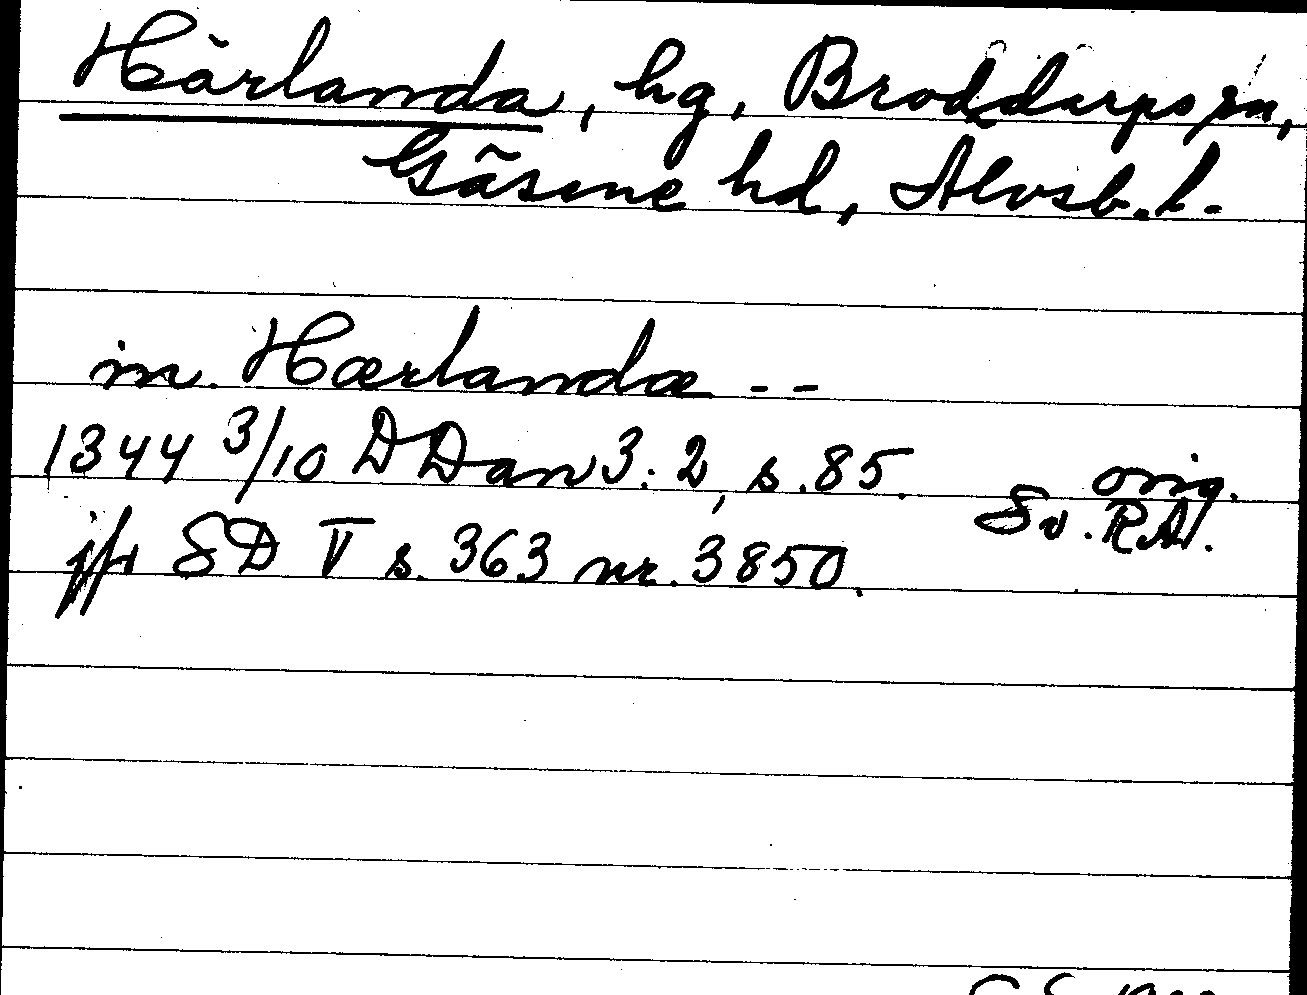 Härlanda, hg, Broddarps sn,
Gäsene hd, Älvsb. l.
in. Hærlandæ --
1344 3/10 DDan 3:2, s. 85. orig. Sv. RA.
jfr SD V s. 363 nr. 3850.